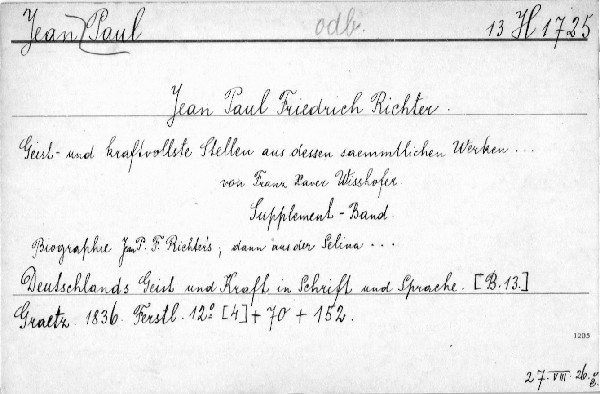 Jean Paul odb. 13 H 1725
Jean Paul Friedrich Richter.
Geist- und kraftvollste Stellen aus dessen saemmtlichen Werken ...
von Franz Xaver Wisshofer.
Supplement-Band.
Biographie Jean P. F. Richter's, dann aus der Selina ...
Deutschlands Geist und Kraft in Schrift und Sprache. [B. 13.]
Graetz. 1836. Ferstl. 12° [4] + 70 + 152.
1205
27. VIII. 26.